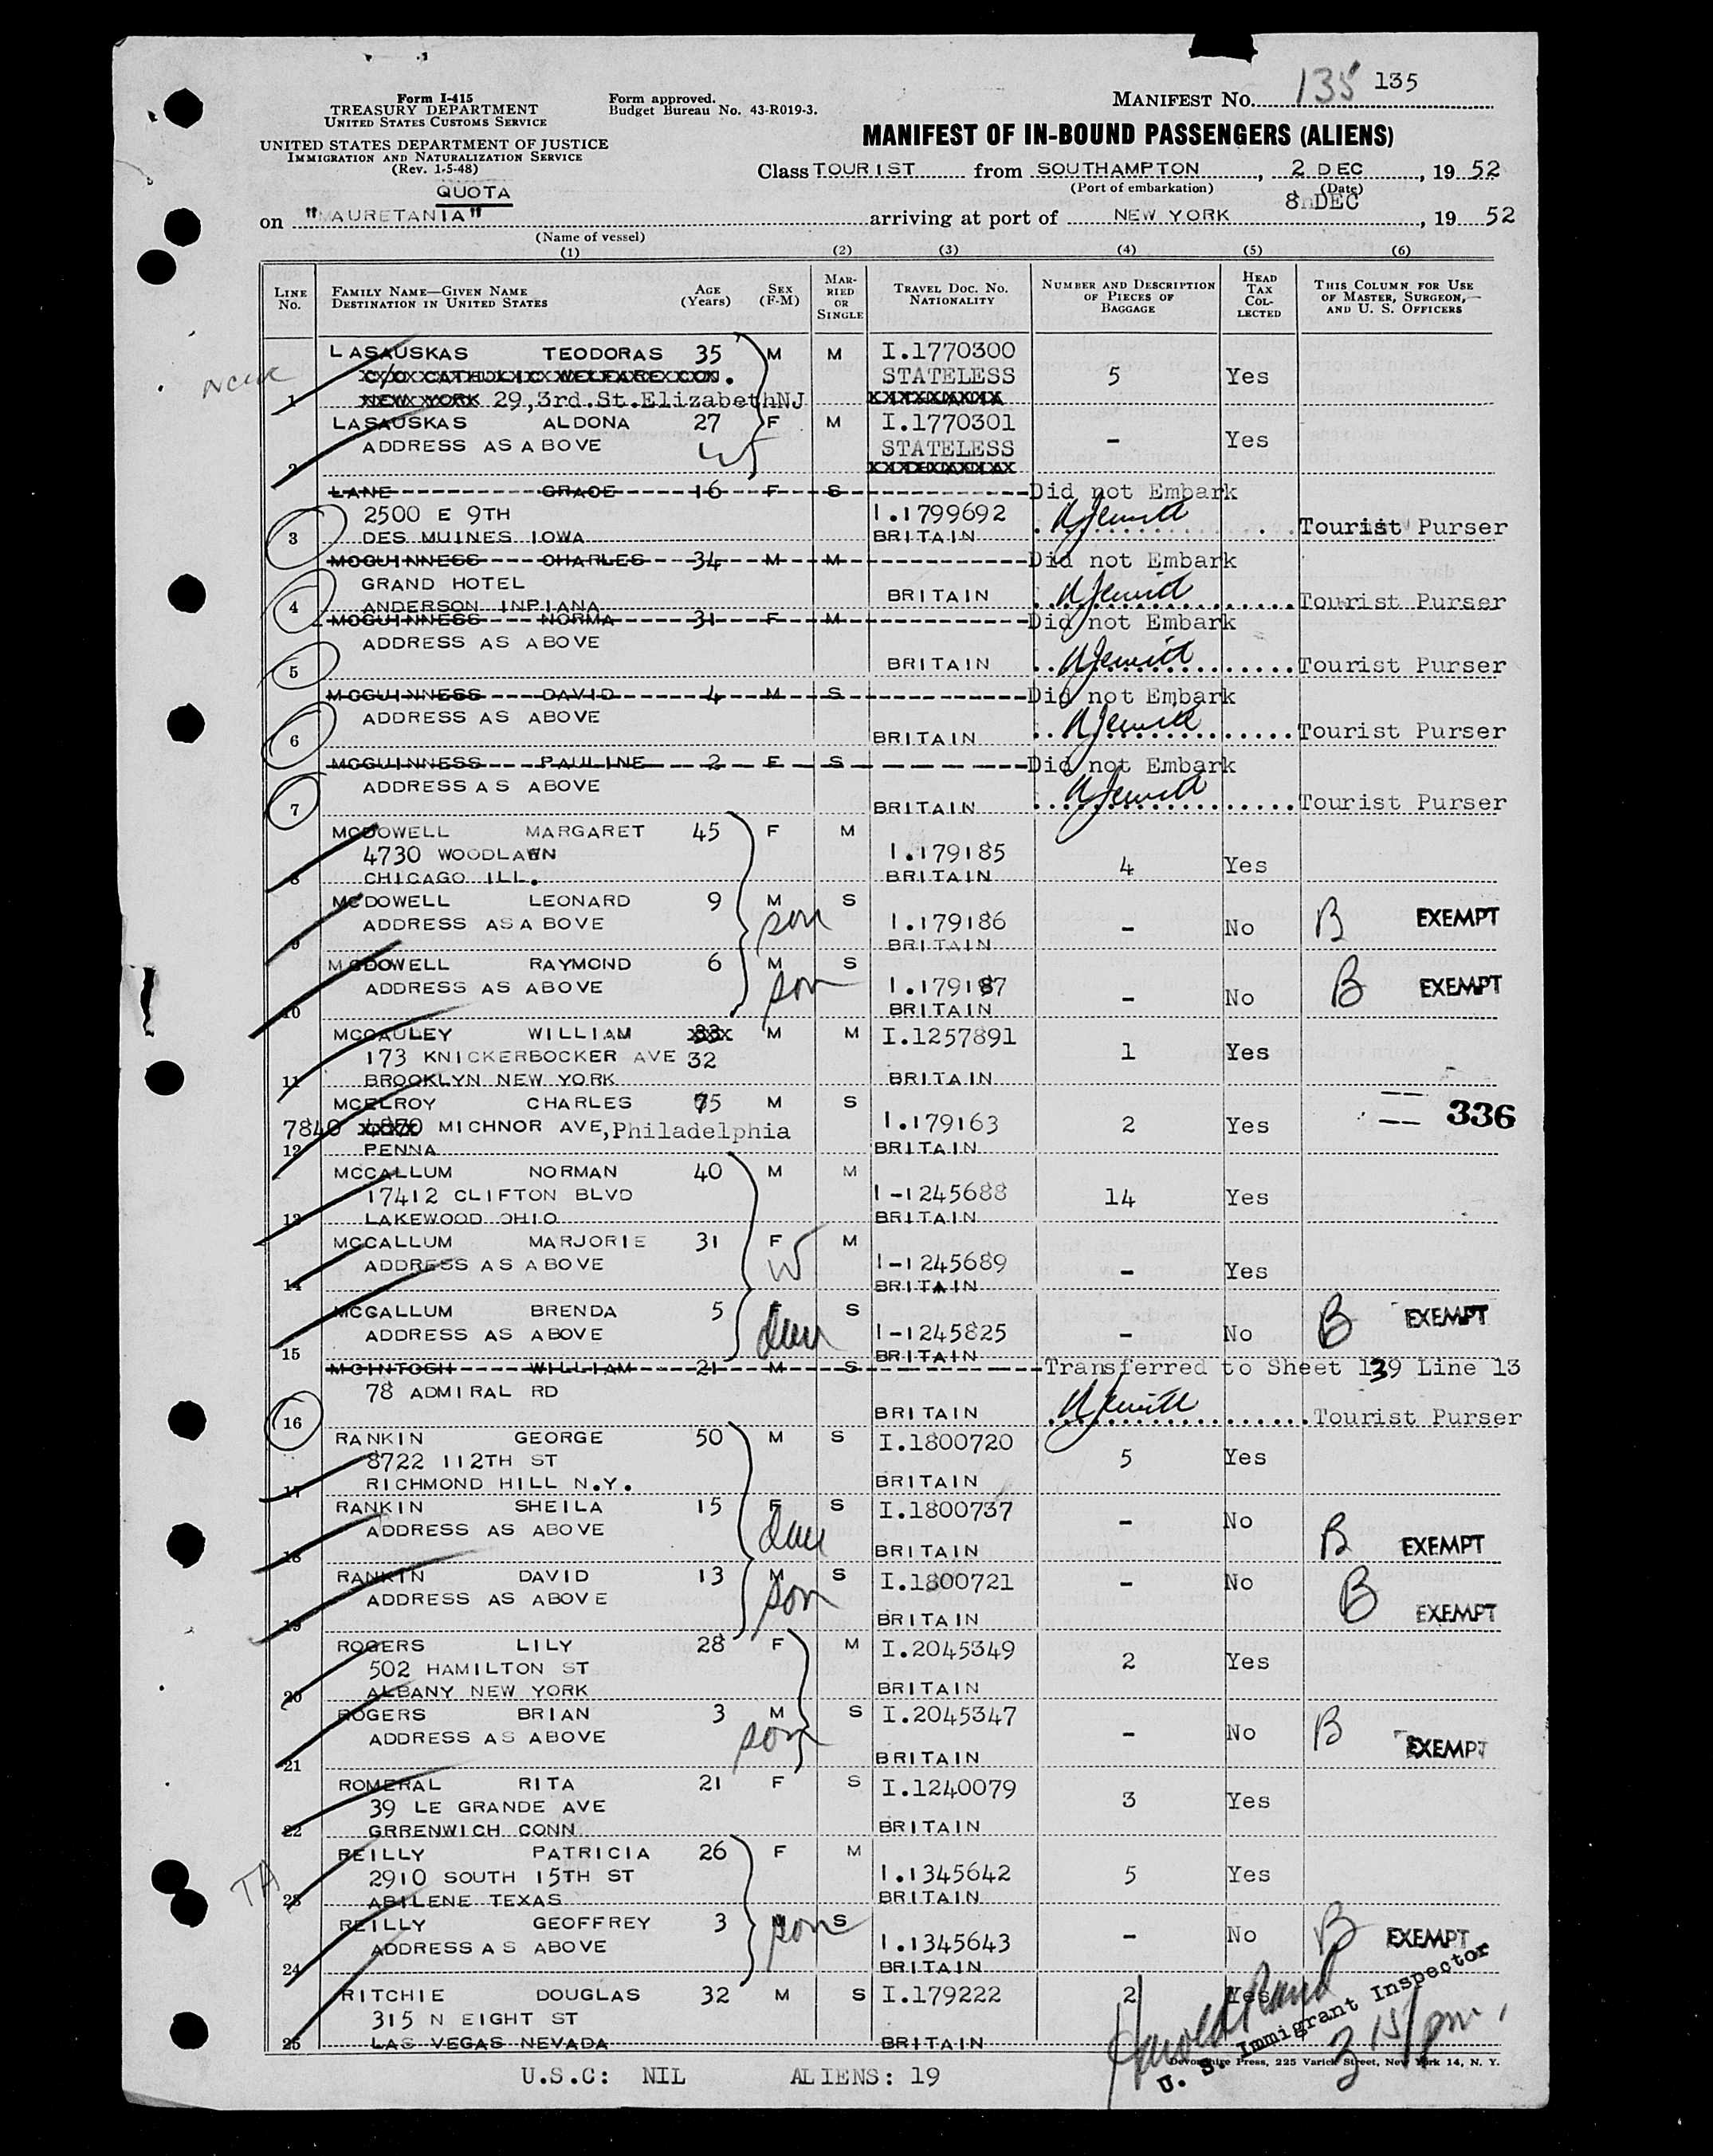 Form I-415
TREASURY DEPARTMENT
UNITED STATES CUSTOMS SERVICE
UNITED STATES DEPARTMENT OF JUSTICE
IMMIGRATION AND NATURALIZATION SERVICE
(Rev. 1-5-48)
QUOTA
Form approved.
Budget Bureau No. 43-R019-3.
MANIFEST NO. 135 135
MANIFEST OF IN-BOUND PASSENGERS (ALIENS)
Class TOURIST from SOUTHAMPTON, 2 DEC, 19 52
(Port of embarkation) (Date)
on "MAURETANIA" arriving at port of NEW YORK 8 DEC, 19 52
(Name of vessel)
(1) (2) (3) (4) (5) (6)
LINE NO. FAMILY NAME—GIVEN NAME DESTINATION IN UNITED STATES AGE (Years) SEX (F-M) MARRIED OR SINGLE TRAVEL DOC. NO. NATIONALITY NUMBER AND DESCRIPTION OF PIECES OF BAGGAGE HEAD TAX COLLECTED THIS COLUMN FOR USE OF MASTER, SURGEON, AND U. S. OFFICERS
LASAUSKAS TEODORAS 35 M M I.1770300
C/O CATHOLIC WELFARE CON. STATELESS 5 Yes
1 NEW YORK 29,3rd.St.ElizabethNJ XXXXXXXXXX
LASAUSKAS ALDONA 27 F M I.1770301
ADDRESS AS ABOVE W STATELESS - Yes
2 XXXXXXXXXX
LANE GRACE 16 F S Did not Embark
2500 E 9TH I.1799692
3 DES MUINES IOWA BRITAIN Tourist Purser
MCGUINNESS CHARLES 34 M M Did not Embark
GRAND HOTEL BRITAIN
4 ANDERSON INPIANA Tourist Purser
MCGUINNESS NORMA 31 F M Did not Embark
ADDRESS AS ABOVE
5 BRITAIN Tourist Purser
MCGUINNESS DAVID 4 M S Did not Embark
ADDRESS AS ABOVE
6 BRITAIN Tourist Purser
MCGUINNESS PAULINE 2 F S Did not Embark
ADDRESS AS ABOVE
7 BRITAIN Tourist Purser
MCDOWELL MARGARET 45 F M
4730 WOODLAWN I.179185 4 Yes
8 CHICAGO ILL. BRITAIN
MCDOWELL LEONARD 9 M S
ADDRESS AS ABOVE son I.179186 - No B EXEMPT
9 BRITAIN
MCDOWELL RAYMOND 6 M S
ADDRESS AS ABOVE son I.179187 - No B EXEMPT
10 BRITAIN
MCCAULEY WILLIAM 33 M M I.1257891
173 KNICKERBOCKER AVE 32 1 Yes
11 BROOKLYN NEW YORK BRITAIN
MCELROY CHARLES 75 M S
7840 MICHNOR AVE,Philadelphia I.179163 2 Yes 336
12 PENNA BRITAIN
MCCALLUM NORMAN 40 M M
17412 CLIFTON BLVD I-1245688 14 Yes
13 LAKEWOOD OHIO BRITAIN
MCCALLUM MARJORIE 31 F M
ADDRESS AS ABOVE W I-1245689 - Yes
14 BRITAIN
MCCALLUM BRENDA 5 F S
ADDRESS AS ABOVE dau I-1245825 - No B EXEMPT
15 BRITAIN
MCINTOSH WILLIAM 21 M S Transferred to Sheet 139 Line 13
78 ADMIRAL RD
16 BRITAIN Tourist Purser
RANKIN GEORGE 50 M S I.1800720
8722 112TH ST 5 Yes
17 RICHMOND HILL N.Y. BRITAIN
RANKIN SHEILA 15 F S I.1800737
ADDRESS AS ABOVE dau - No B EXEMPT
18 BRITAIN
RANKIN DAVID 13 M S I.1800721
ADDRESS AS ABOVE son - No B EXEMPT
19 BRITAIN
ROGERS LILY 28 F M I.2045349
502 HAMILTON ST 2 Yes
20 ALBANY NEW YORK BRITAIN
ROGERS BRIAN 3 M S I.2045347
ADDRESS AS ABOVE son - No B EXEMPT
21 BRITAIN
ROMERAL RITA 21 F S I.1240079
39 LE GRANDE AVE 3 Yes
22 GRRENWICH CONN BRITAIN
REILLY PATRICIA 26 F M
2910 SOUTH 15TH ST I.1345642 5 Yes
TA 23 ABILENE TEXAS BRITAIN
REILLY GEOFFREY 3 M S
ADDRESS AS ABOVE son I.1345643 - No B EXEMPT
24 BRITAIN
RITCHIE DOUGLAS 32 M S I.179222 2 Yes
315 N EIGHT ST
25 LAS VEGAS NEVADA BRITAIN
Harold Rand
U. S. Immigrant Inspector
3 15 pm.
Devonshire Press, 225 Varick Street, New York 14, N. Y.
U.S.C: NIL ALIENS: 19